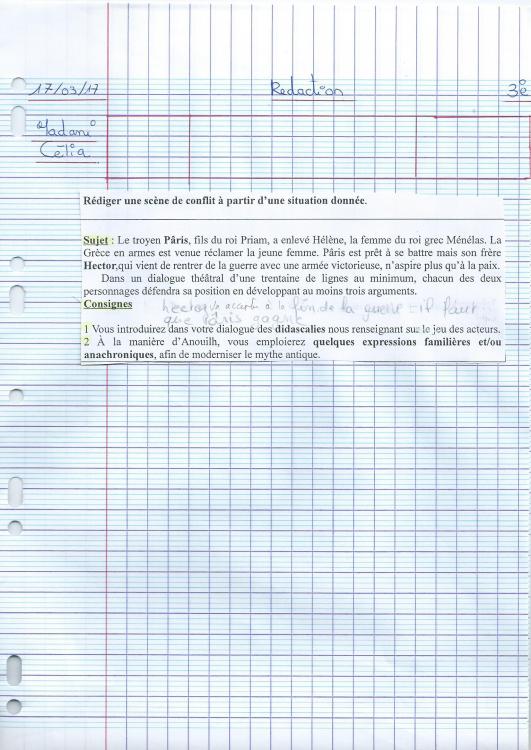 17/03/17 Redaction 3è
Madani
Célia
Rédiger une scène de conflit à partir d'une situation donnée.
Sujet : Le troyen Pâris, fils du roi Priam, a enlevé Hélène, la femme du roi grec Ménélas. La
Grèce en armes est venue réclamer la jeune femme. Pâris est prêt à se battre mais son frère
Hector,qui vient de rentrer de la guerre avec une armée victorieuse, n'aspire plus qu'à la paix.
Dans un dialogue théâtral d'une trentaine de lignes au minimum, chacun des deux
personnages défendra sa position en développant au moins trois arguments.
Consignes
hector à la fin de la guerre = il faut
que Pâris gagne
1 Vous introduirez dans votre dialogue des didascalies nous renseignant sur le jeu des acteurs.
2 À la manière d'Anouilh, vous emploierez quelques expressions familières et/ou
anachroniques, afin de moderniser le mythe antique.